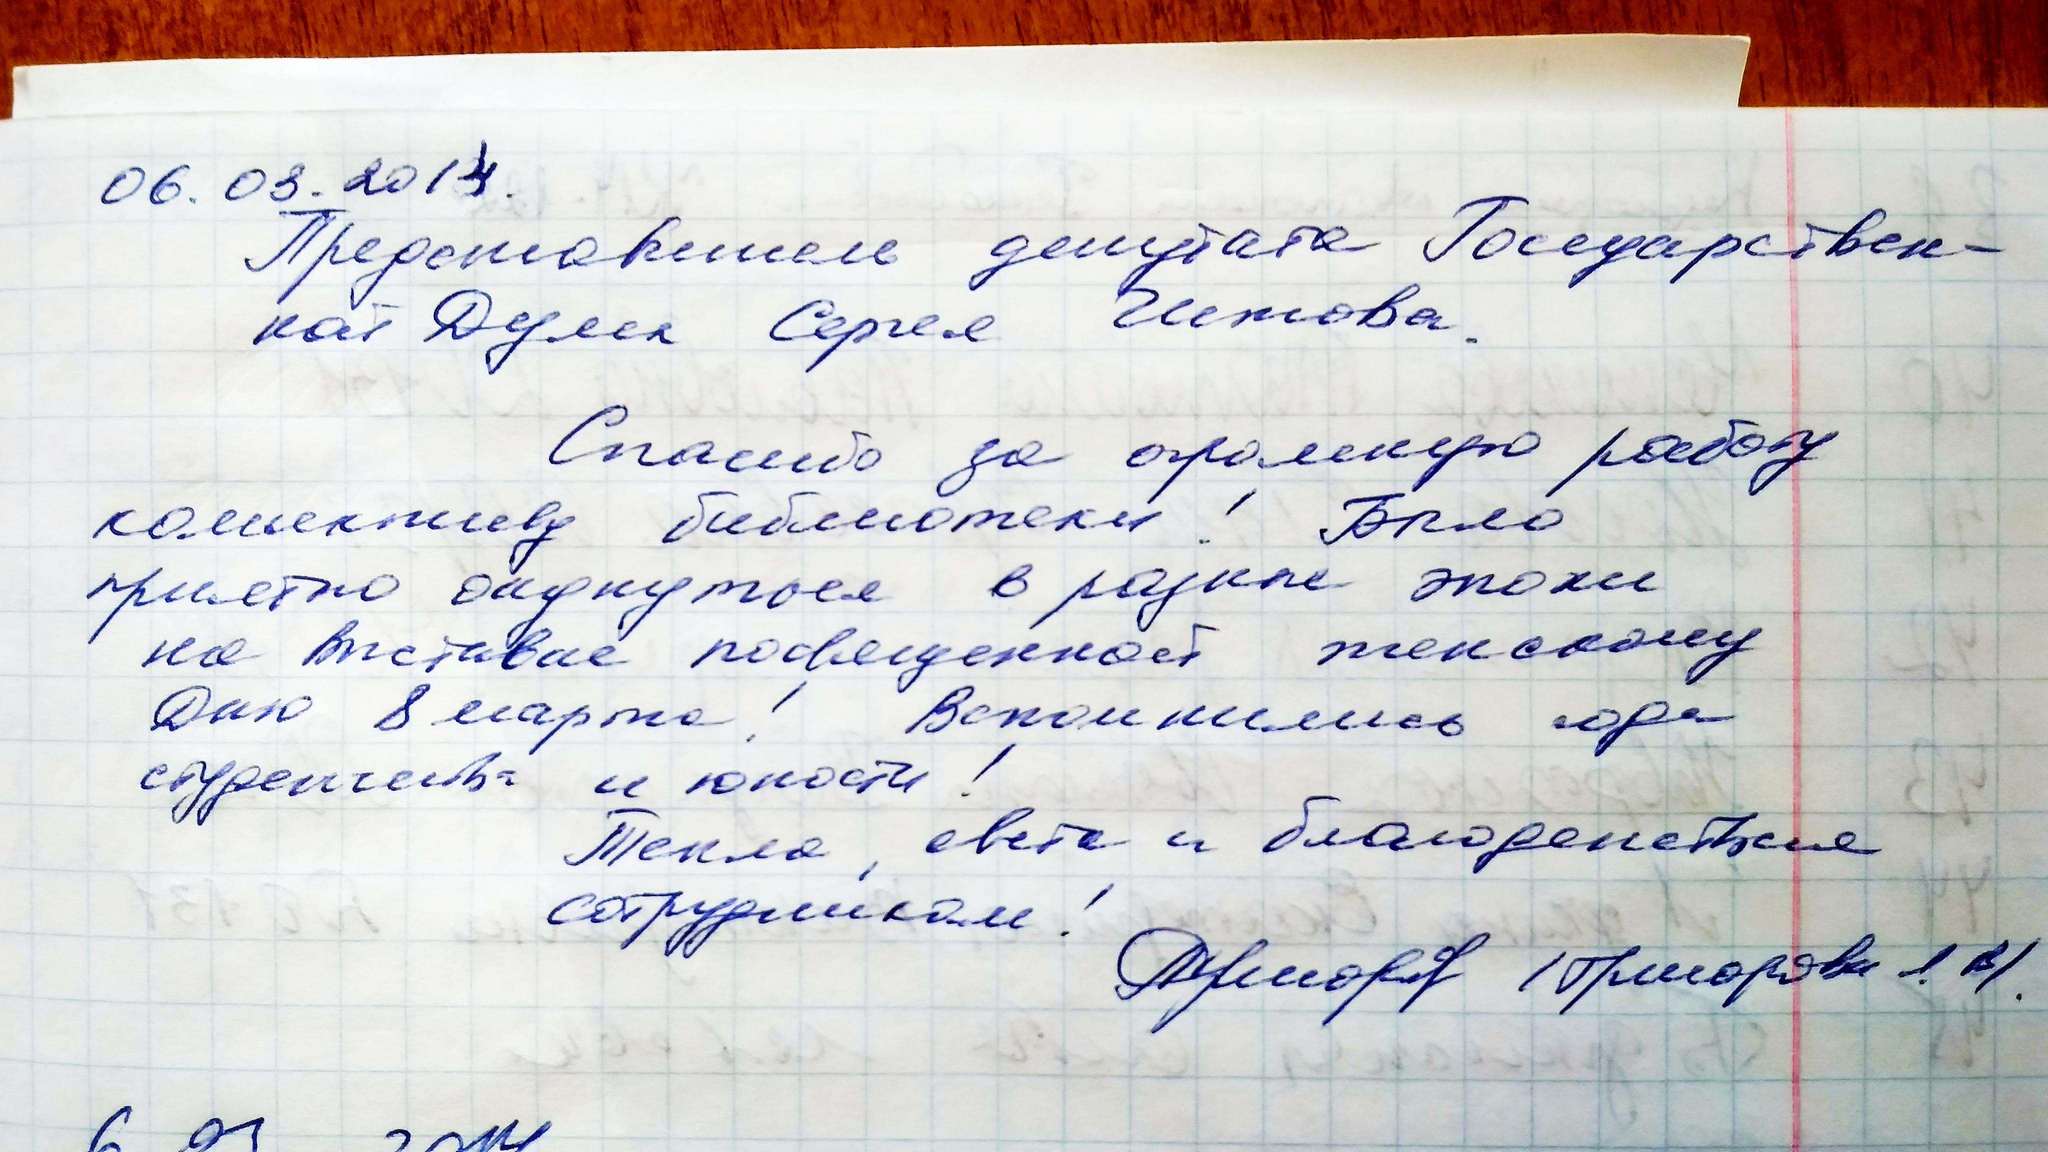 06.03.2014.
Представитель депутата Государствен-
ной Думы Сергея Чижова.
Спасибо за огромную работу
коллективу библиотеки! Было
приятно окунуться в разные эпохи
на выставке посвященной женскому
Дню 8 марта! Вспомнились года
студенчества и юности!
Тепла, света и благоденствия
сотрудникам!
6 03 2014